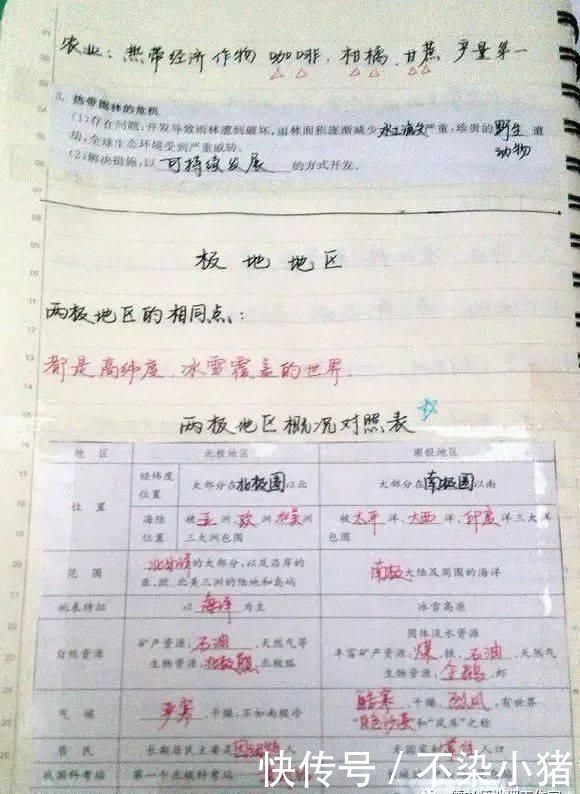 农业：热带经济作物 咖啡、柑橘、甘蔗 产量第一
3. 热带雨林的危机
(1)存在问题：开发导致雨林遭到破坏，雨林面积逐渐减少，水土流失严重，珍贵的野生动物遭
劫，全球生态环境受到严重威胁。
(2)解决措施：以可持续发展的方式开发。
极地地区
两极地区的相同点：
都是高纬度、冰雪覆盖的世界.
两极地区概况对照表
地区 北极地区 南极地区
位置 经纬度位置 大部分在北极圈以北 大部分在南极圈以南
海陆位置 被亚洲、欧洲、北美洲三大洲包围 被太平洋、大西洋、印度洋三大洋包围
范围 北冰洋的大部分，以及沿岸的亚、欧、北美三洲的陆地和岛屿 南极大陆及周围的海洋
地表特征 以海洋为主 冰雪高原
自然资源 矿产资源：石油、天然气等 生物资源：北极熊、北极狐 固体淡水资源 丰富矿产资源：煤、铁、石油、天然气 生物资源：企鹅、虾
气候 严寒、干燥，不如南极冷 酷寒、干燥、烈风，有世界“白色沙漠”和“风库”之称
居民 长期居民主要是因纽特人 人口
我国科考站 第一个北极科考站
快传号 / 不染小猪